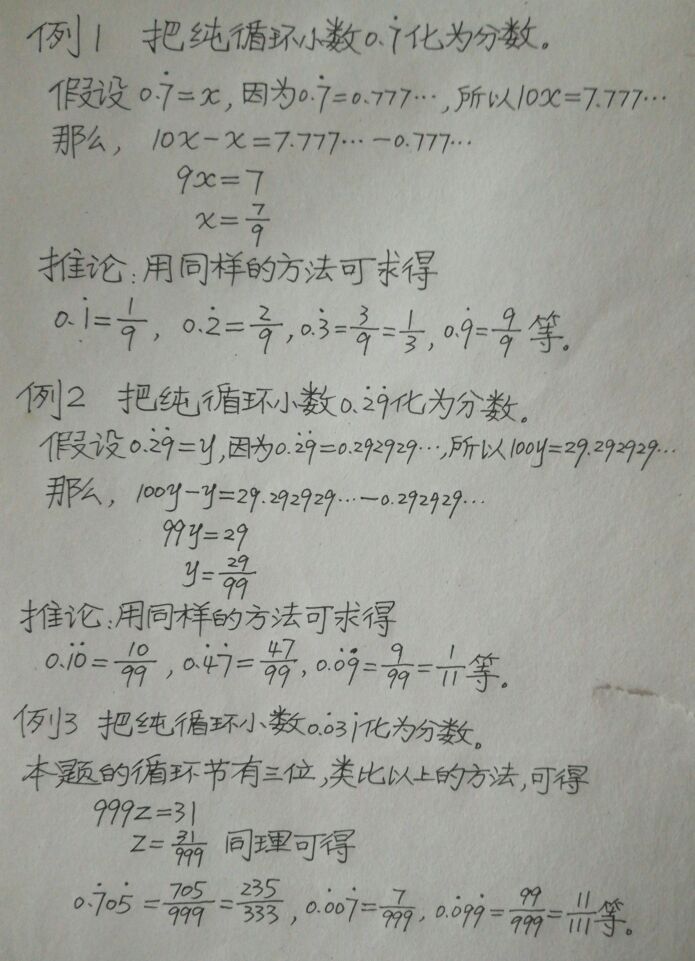 例1 把纯循环小数0.7̇化为分数。
假设0.7̇=x,因为0.7̇=0.777…,所以10x=7.777…
那么, 10x-x=7.777…-0.777…
9x=7
x=7/9
推论:用同样的方法可求得
0.1̇=1/9, 0.2̇=2/9, 0.3̇=3/9=1/3, 0.9̇=9/9等。
例2 把纯循环小数0.2̇9̇化为分数。
假设0.2̇9̇=y,因为0.2̇9̇=0.292929…,所以100y=29.292929…
那么, 100y-y=29.292929…-0.292929…
99y=29
y=29/99
推论:用同样的方法可求得
0.1̇0̇=10/99, 0.4̇7̇=47/99, 0.0̇9̇=9/99=1/11等。
例3 把纯循环小数0.0̇31̇化为分数。
本题的循环节有三位,类比以上的方法,可得
999z=31
z=31/999 同理可得
0.7̇05̇=705/999=235/333, 0.0̇07̇=7/999, 0.0̇99̇=99/999=11/111等。